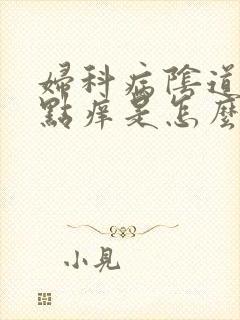 婦科病陰道
點痒是怎麼
小見